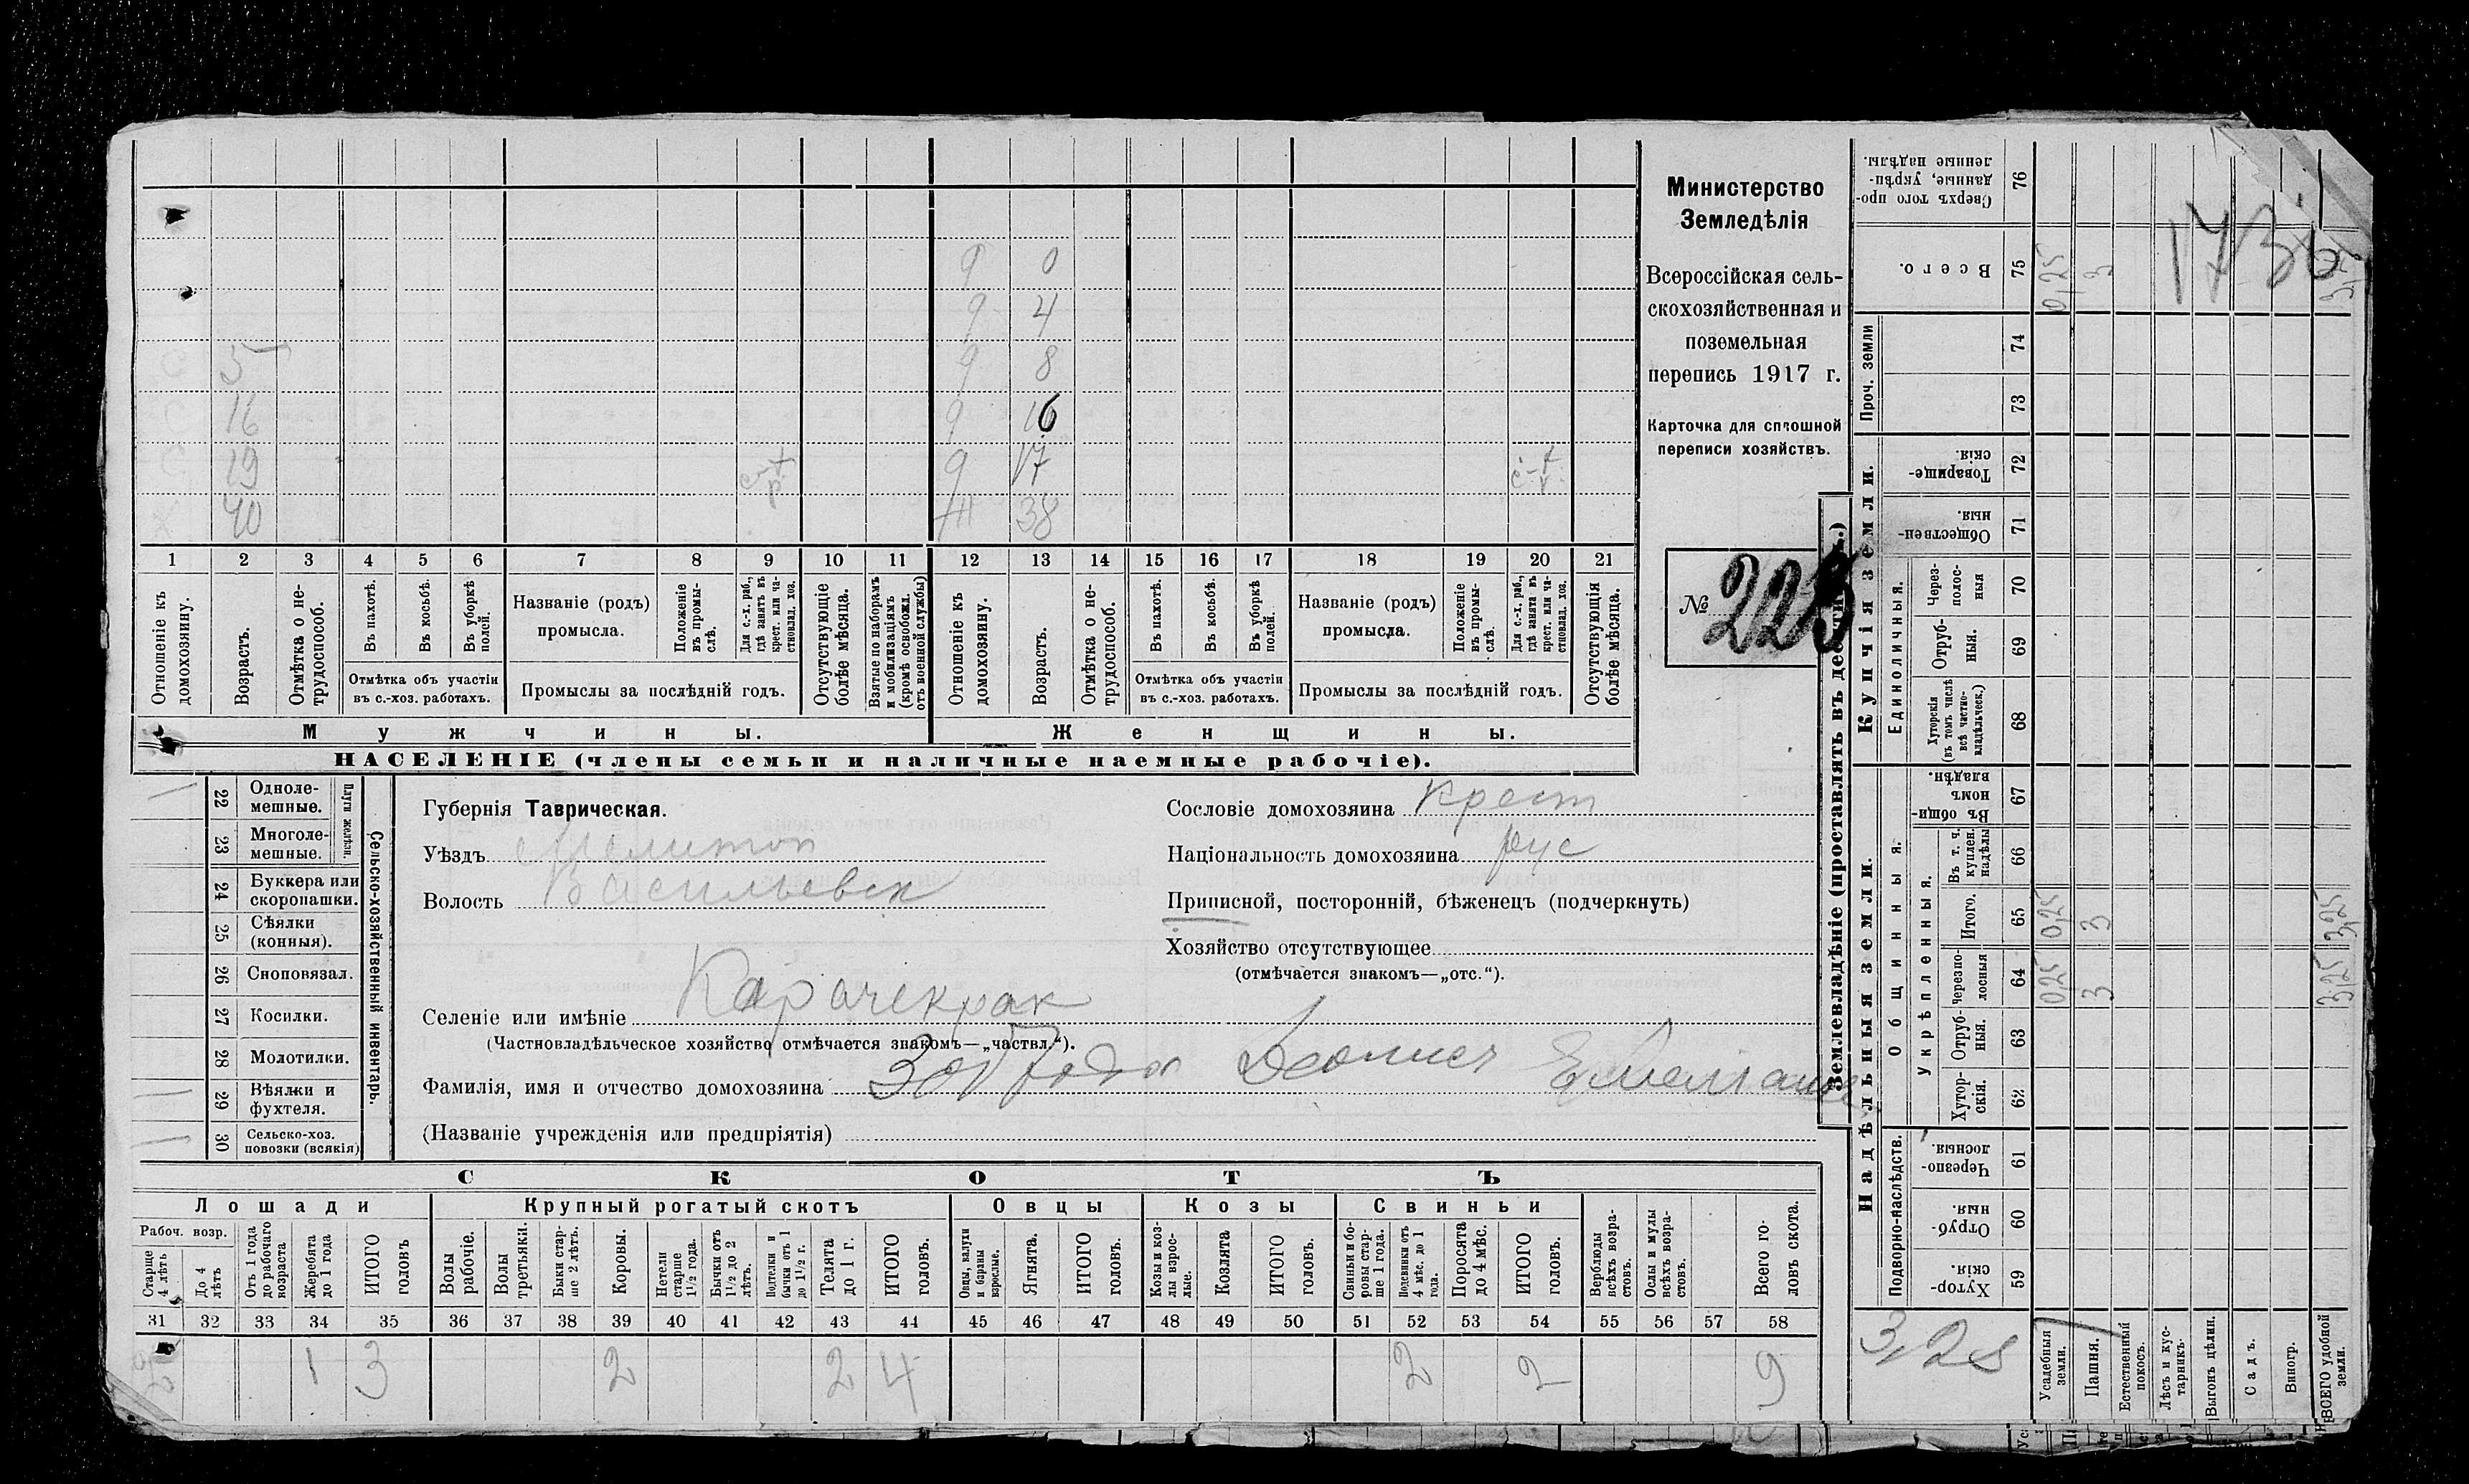 9 0
9 4
5 9 8
16 9 16
19 с-х р. 9 17 с-х р.
40 38
1 2 3 4 5 6 7 8 9 10 11 12 13 14 15 16 17 18 19 20 21
Отношеніе къ домохозяину.
Возрастъ.
Отмѣтка о не-
трудоспособ.
Въ пахотѣ.
Въ косьбѣ.
Въ уборкѣ полей.
Отмѣтка объ участіи
въ с.-хоз. работахъ.
Названіе (родъ)
промысла.
Положеніе въ промы-
слѣ.
Для с.-х. раб.,
гдѣ занятъ въ
крест. или ча-
стновлад. хоз.
Промыслы за послѣдній годъ.
Отсутствующіе
болѣе мѣсяца.
Взятые по наборамъ
и мобилизаціямъ
(кромѣ освобожд.
отъ военной службы)
Отношеніе къ домохозяину.
Возрастъ.
Отмѣтка о не-
трудоспособ.
Въ пахотѣ.
Въ косьбѣ.
Въ уборкѣ полей.
Отмѣтка объ участіи
въ с.-хоз. работахъ.
Названіе (родъ)
промысла.
Положеніе въ промы-
слѣ.
Для с.-х. раб.,
гдѣ занята въ
крест. или ча-
стновлад. хоз.
Промыслы за послѣдній годъ.
Отсутствующія
болѣе мѣсяца.
Мужчины. Женщины.
НАСЕЛЕНІЕ (члены семьи и наличные наемные рабочіе).
Министерство
Земледѣлія
Всероссійская сель-
скохозяйственная и
поземельная
перепись 1917 г.
Карточка для сплошной
переписи хозяйствъ.
№ 225
Сельско-хозяйственный инвентарь.
Плуги желѣзн.
22 Одноле-
мешные.
23 Многоле-
мешные.
24 Буккера или
скоропашки.
25 Сѣялки
(конныя).
26 Сноповязал.
27 Косилки.
28 Молотилки.
29 Вѣялки и
фухтеля.
30 Сельско-хоз.
повозки (всякія)
Губернія Таврическая.
Уѣздъ Мелитоп
Волость Васильевск
Селеніе или имѣніе Карачекрак
(Частновладѣльческое хозяйство отмѣчается знакомъ—„частвл.“).
Фамилія, имя и отчество домохозяина
(Названіе учрежденія или предпріятія)
Сословіе домохозяина крест
Національность домохозяина рус
Приписной, посторонній, бѣженецъ (подчеркнуть)
Хозяйство отсутствующее
(отмѣчается знакомъ—„отс.“).
СКОТЪ
Лошади
Рабоч. возр.
Старше 4 лѣтъ
До 4 лѣтъ
Отъ 1 года
до рабочаго
возраста
Жеребята до 1 года
ИТОГО головъ
Крупный рогатый скотъ
Волы рабочіе.
Волы третьяки.
Быки стар-
ше 2 лѣтъ.
Коровы.
Нетели старше 1½ года.
Бычки отъ 1½ до 2 лѣтъ.
Подтелки и бычки отъ 1 до 1½ г.
Телята до 1 г.
ИТОГО головъ.
Овцы
Овцы, валухи и бараны взрослые.
Ягнята.
ИТОГО головъ.
Козы
Козы и коз-
лы взрос-
лые.
Козлята
ИТОГО головъ.
Свиньи
Свиньи и бо-
ровы стар-
ше 1 года.
Подсвинки отъ 4 мѣс. до 1 года.
Поросята до 4 мѣс.
ИТОГО головъ.
Верблюды
всѣхъ возра-
стовъ.
Ослы и мулы
всѣхъ возра-
стовъ.
Всего го-
ловъ скота.
31 32 33 34 35 36 37 38 39 40 41 42 43 44 45 46 47 48 49 50 51 52 53 54 55 56 57 58
2 1 3 2 2 4 2 2 9
Землевладѣніе (проставлять въ
Купчія земли.
Проч. земли
Надѣльныя земли.
Единоличныя.
Общинныя.
Укрѣпленныя.
Подворно-наслѣдств.
76 Сверхъ того про-
данные, укрѣп-
ленные надѣлы.
75 Всего. 0,25 3
74
73
72 Товарище-
скія.
71 Обществен-
ныя.
70 Через-
полос-
ныя
69 Отруб-
ныя.
68 Хуторскія
(въ томъ числѣ
всѣ частно-
владѣльческ.)
67 Въ общин-
номъ
владѣн.
66 Въ т. ч.
куплен.
надѣлы
65 Итого. 0,25 3 3,25
64 Черезпо-
лосныя 0,25 3 3,25
63 Отруб-
ныя.
62 Хутор-
скія.
61 Черезпо-
лосныя.
60 Отруб-
ныя.
59 Хутор-
скія.
1736
Усадебныя
земли.
Пашня.
Естественный
покосъ.
Лѣсъ и кус-
тарникъ.
Выгонъ цѣлин.
Садъ.
Виногр.
ВСЕГО удобной
земли.